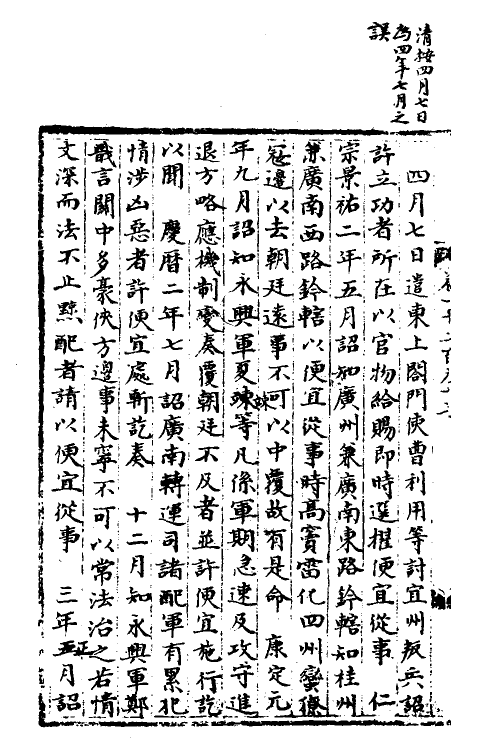 清按四月七日
為四年七月之
誤
四月七日遣東上閤門使曹利用等討宜州叛兵詔
許立功者所在以官物給賜即時選擢便宜從事 仁
宗景祐二年五月詔知廣州兼廣南東路鈐轄知桂州
兼廣南西路鈐轄以便宜從事時高竇雷化四州蠻獠
寇邊以去朝廷遠事不可以中覆故有是命 康定元
年九月詔知永興軍夏竦等凡係軍期急速及攻守進
退方略應機制變奏覆朝廷不及者並許便宜施行訖
以聞 慶曆二年七月詔廣南轉運司諸配軍有累犯
情涉凶惡者許便宜處斬訖奏 十二月知永興軍鄭
戩言關中多豪俠方邊事未寧不可以常法治之若情
文深而法不止黥配者請以便宜從事 三年正月詔